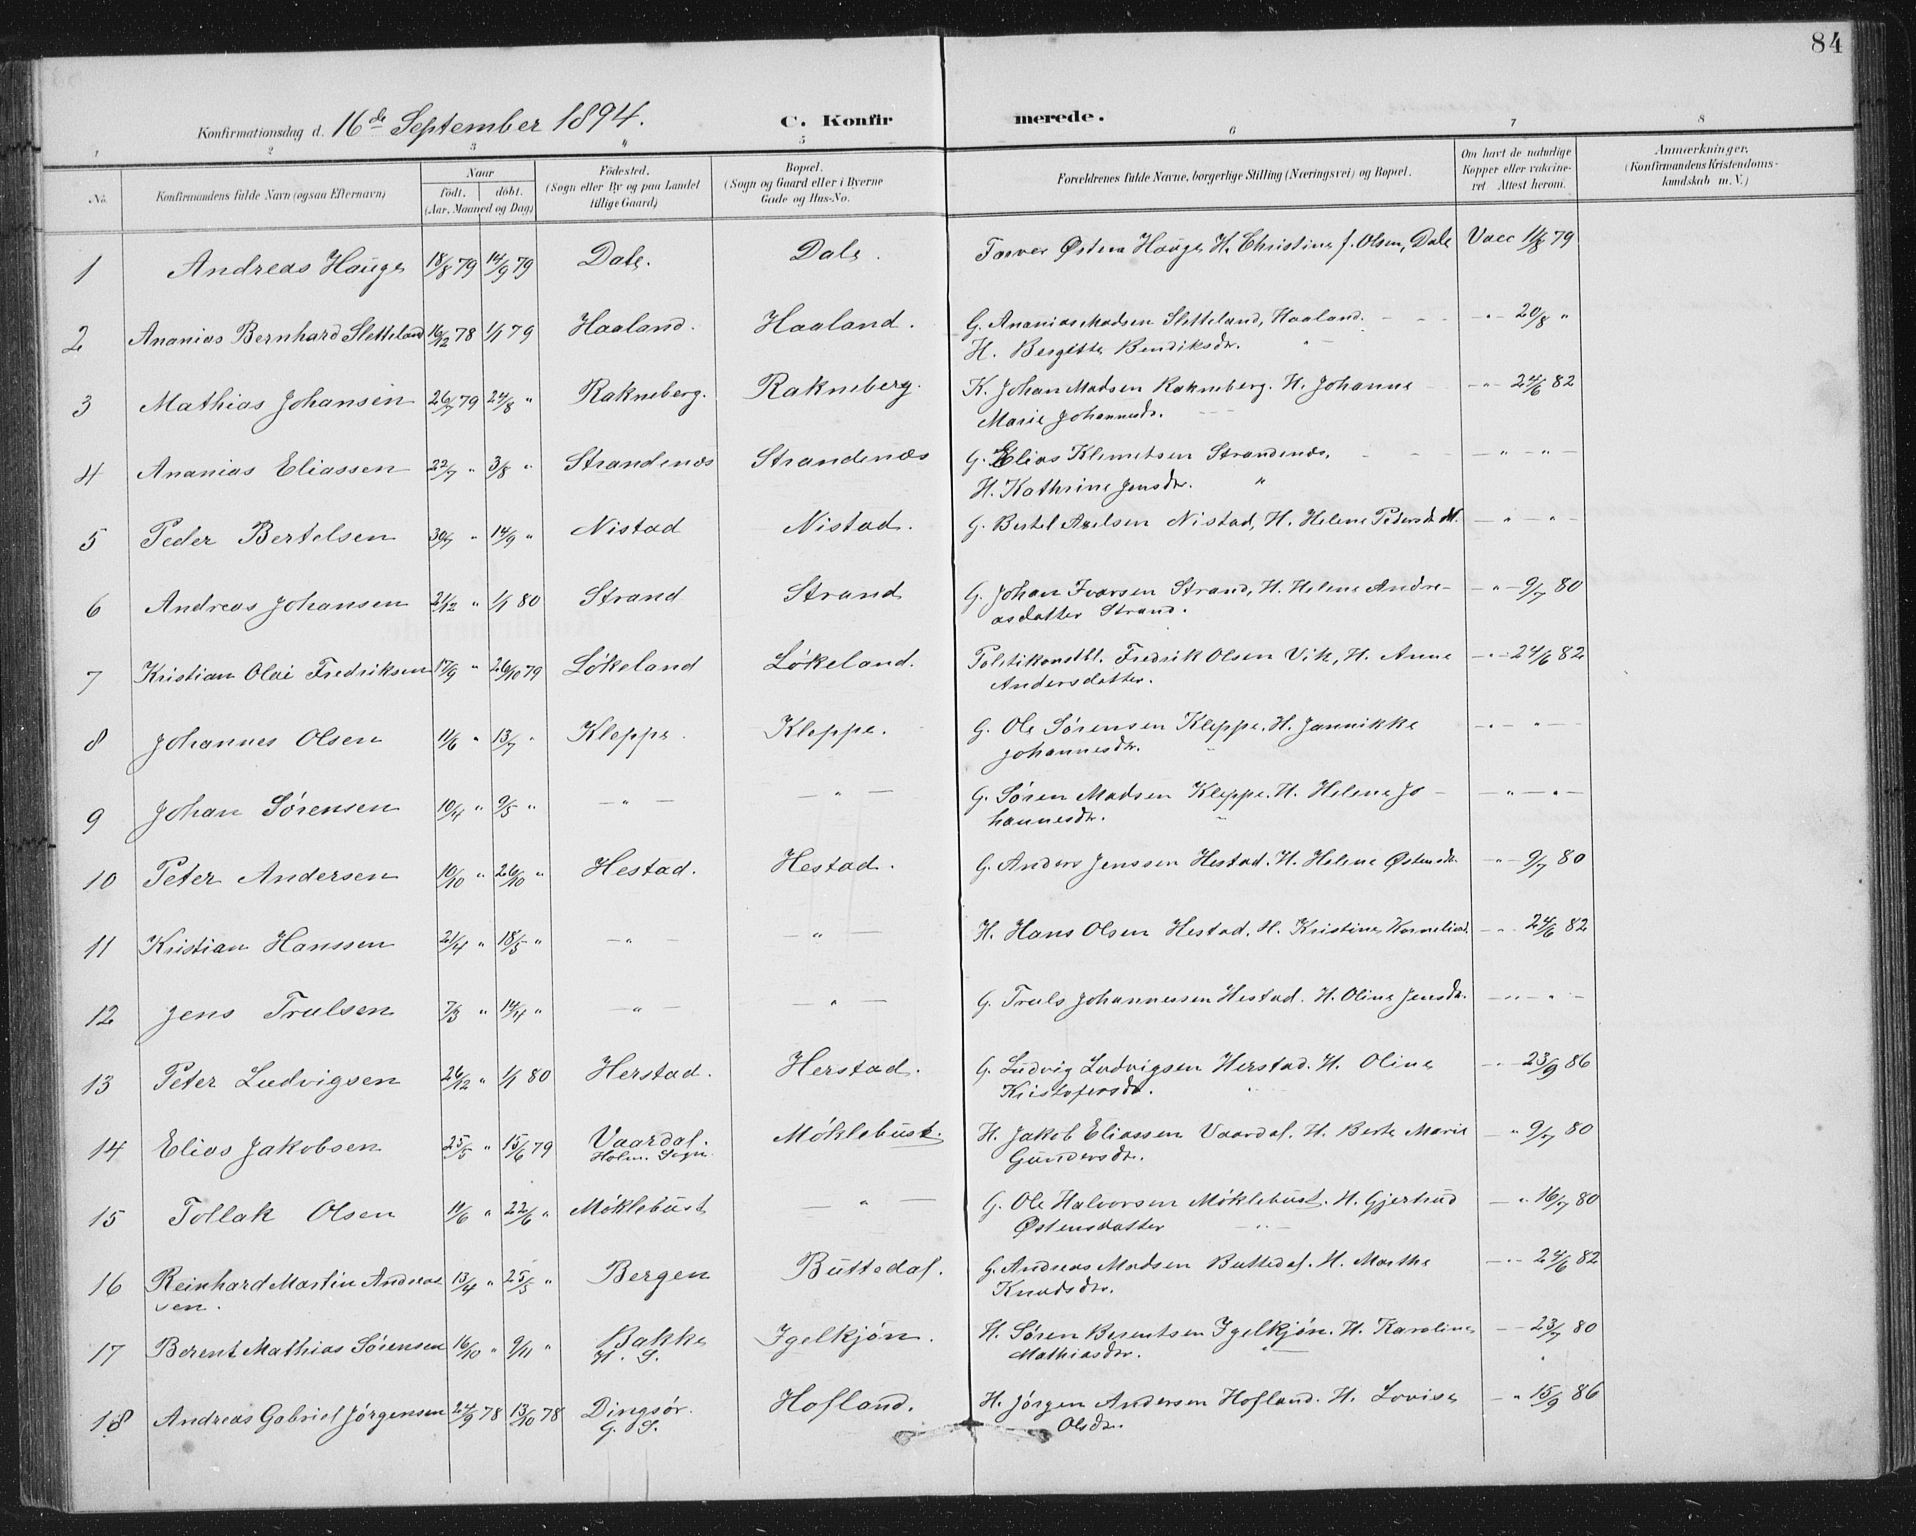 84
Konfirmationsdag d. 16de September 1894. C. Konfirmerede.
1 2 3 4 5 6 7 8
No. Konfirmandens fulde Navn (ogsaa Efternavn) Naar født. døbt. (Aar, Maaned og Dag) Fødested. (Sogn eller By og paa Landet tillige Gaard) Bopæl. (Sogn og Gaard eller i Byerne Gade og Hus-No. Forældrenes fulde Navne, borgerlige Stilling (Næringsvei) og Bopæl. Om havt de naturlige Kopper eller vakcineret. Attest herom. Anmærkninger. (Konfirmandens Kristendomskundskab m. V.)
1 Andreas Hauge 18/8 79 14/9 79 Dale. Dale. Farver Østen Hauge H. Christine f. Olsen, Dale Vacc 11/8 79
2 Ananias Bernhard Sletteland 16/12 78 1/1 79 Haaland. Haaland. G. Ananias Madsen Sletteland, Haaland. - - - " - 20/8 "
H. Bergitte Bendiksdr. "
3 Mathias Johansen 26/7 79 24/8 " Rakneberg. Rakneberg. K. Johan Madsen Rakneberg. H. Johanne - " - 24/6 82
Marie Johannesdr. - - -
4 Ananias Eliassen 22/7 " 3/8 " Strandenæs Strandenæs G. Elias Klemetsen Strandenæs, - - - " - " -
H. Kathrine Jensdr. "
5 Peder Bertelsen 30/7 " 14/9 " Nistad Nistad. G. Bertel Axelsen Nistad, H. Helene Pedersdatt. - " - " -
6 Andreas Johansen 21/12 " 1/1 80 Strand Strand G. Johan Ivarsen Strand, H. Helene Andre- - " - 9/7 80
asdatter Strand.
7 Kristian Olai Fredriksen 17/9 " 26/10 79 Løkeland Løkeland. Politikonstbl. Fredrik Olsen Vik, H. Anne - " - 24/6 82
Andersdatter.
8 Johannes Olsen 11/6 " 13/7 " Kleppe. Kleppe. G. Ole Sørensen Kleppe. H. Jannikke - " - " -
Johannesdr. "
9 Johan Sørensen 10/4 " 9/5 " - " - - " - G. Søren Madsen Kleppe. H. Helene Jo- - " - " -
hannesdr. "
10 Peter Andersen 10/10 " 26/10 " Hestad. Hestad. G. Anders Jenssen Hestad. H. Helene Østensdr. - " - 9/7 80
11 Kristian Hanssen 21/4 " 18/5 " - " - - " - H. Hans Olsen Hestad. H. Kristine Korneliad. - " - 24/6 82
12 Jens Trulsen 7/3 " 14/4 " - " - - " - G. Truls Johannessen Hestad. H. Oline Jensdr. - " - " -
13 Peter Ludvigsen 26/12 " 1/1 80 Herstad. Herstad. G. Ludvig Ludvigsen Herstad. H. Oline - " - 23/9 86
Kristofersdr. "
14 Elias Jakobsen 25/5 " 15/6 79 Vaardal. Møklebust. H. Jakob Eliassen Vaardal. H. Berte Marie - " 9/7 80
Holm. Sogn. Gundersdr.
15 Tollak Olsen 11/6 " 22/6 " Møklebust - " - G. Ole Halvorsen Møklebust. H. Gjertrud - " 16/7 80
Østensdatter - " -
16 Reinhard Martin Andreas 13/4 " 25/5 " Bergen Buttedal. G. Andreas Madsen Buttedal. H. Marthe - " - 24/6 82
sen. Knudsdr.
17 Berent Mathias Sørensen 16/10 " 9/11 " Bakke Igelkjøn. H. Søren Berentsen Igelkjøn. H. Karoline - - 23/7 80
H. S. Mathiasdr. - " - "
18 Andreas Gabriel Jørgensen 24/9 78 13/10 78 Dingsør. Hofland. H. Jørgen Andersen Hofland. H. Lovise - " 15/9 86
G. S. Olsdr.